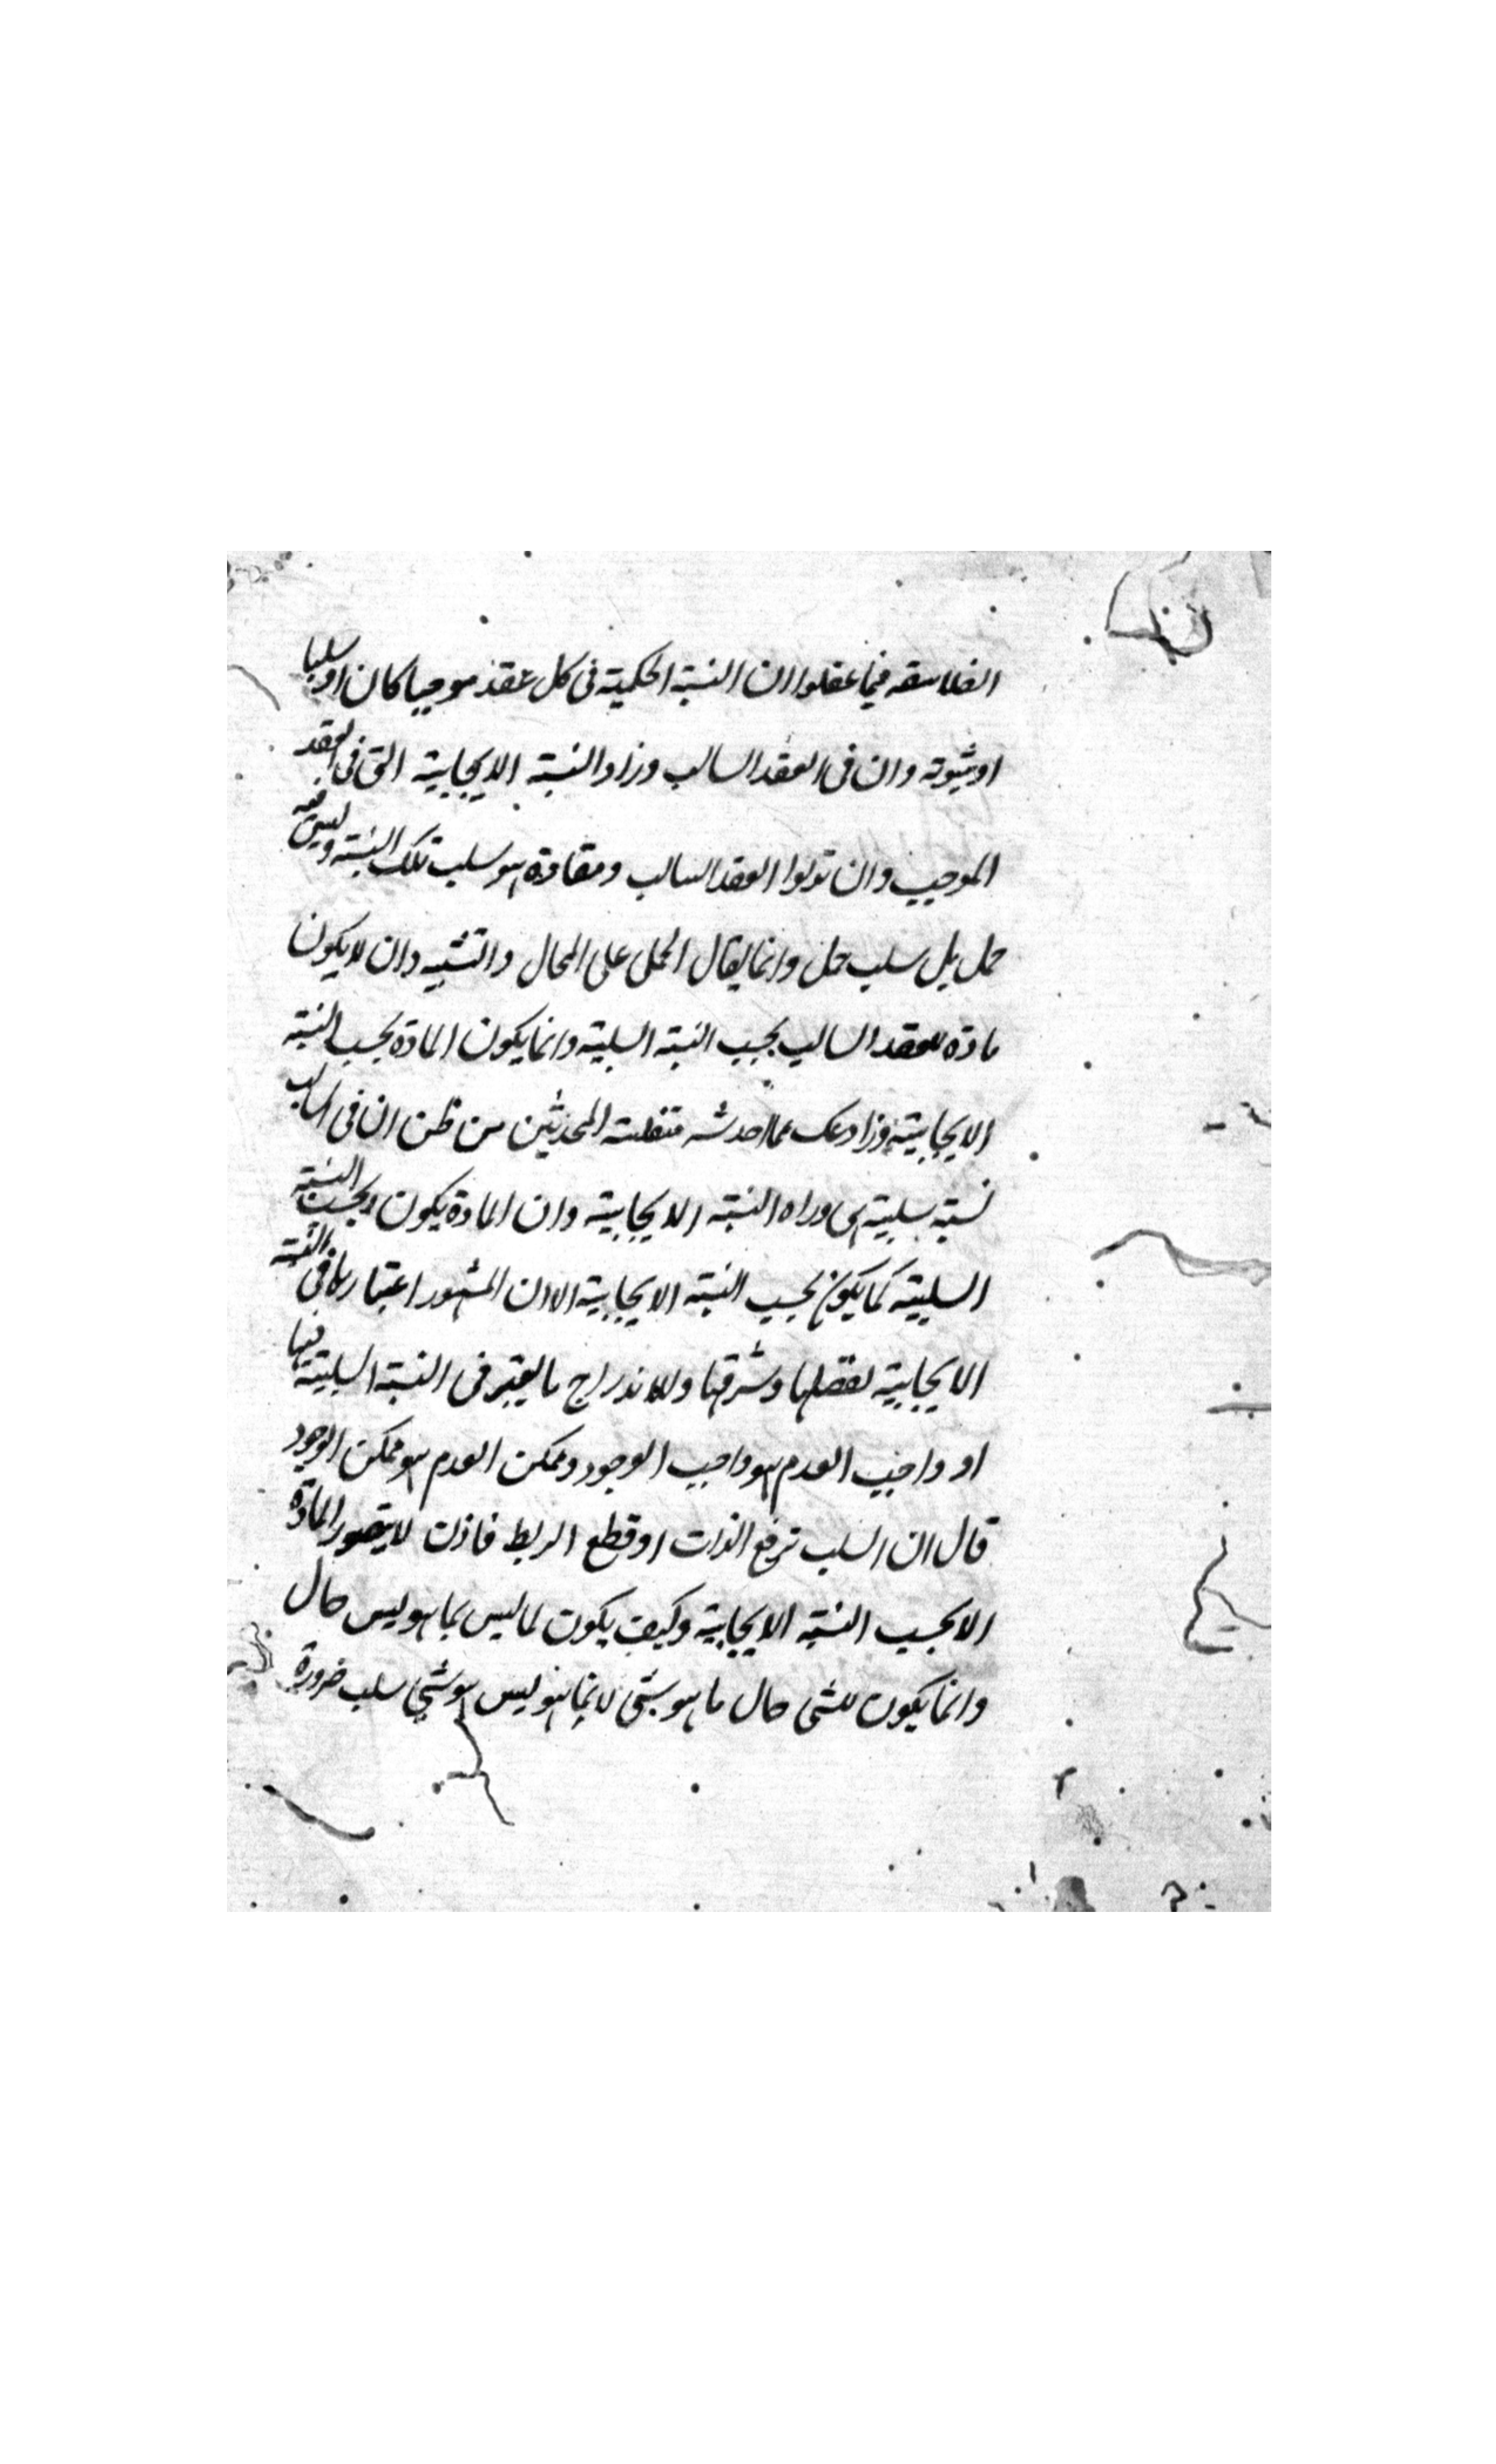 الفلاسفه فيما عقلوا ان النسبة الحكمية فى كل عقد موجبا كان او سلبيا
او ثبوته وان فى العقد السالب وزاد النسبة الايجابية التى فى العقد
الموجب وان تولوا العقد السالب ومفاده هو سلب تلك النسبة وليس فيه
حمل بل سلب حمل وانما يقال الحمل على المجال والتشبيه وان لا يكون
مادة للعقد السالب بحسب النسبة السلبية وانما يكون المادة بحسب النسبة
الايجابية وزادعك عما احدثه متفلسفة المحدثين من ظن ان فى السالب
نسبة سلبية هى وراه النسبة الايجابية وان المادة يكون بحسب النسبة
السلبية كما يكون بحسب النسبة الايجابية الا ان المشهور اعتبارها فى النسبة
الايجابية لفضلها وشرفها وللاندراج ما يعتبر فى النسبة السلبية فيها
او واجب العدم هو واجب الوجود وممكن العدم هو ممكن الوجود
قال ان السلب ترفع الذات او قطع الربط فاذن لا يتصور المادة
الا بحسب النسبة الايجابية وكيف يكون لما ليس بما هو ليس حال
وانما يكون للشى حال ما هو بشى لا بما هو ليس هو شى سلب ضرورة